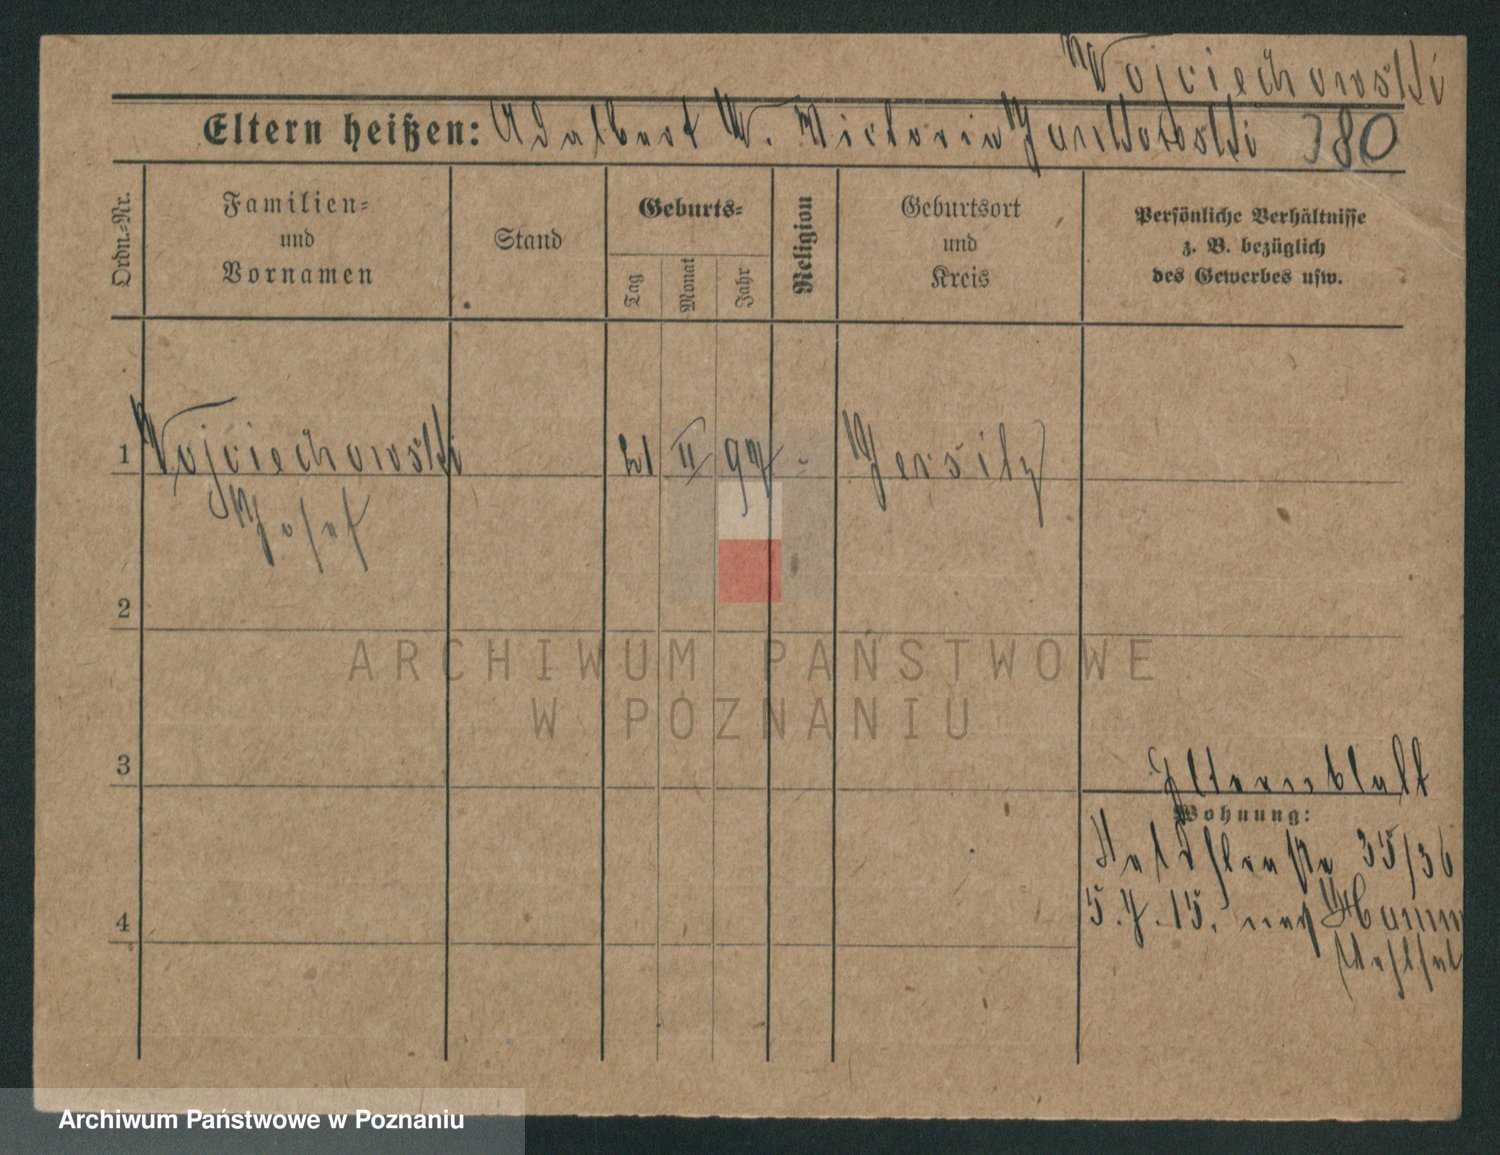 Wojciechowski
Eltern heißen: Adalbert W. Victoria Jankowski 380
Ordn.-Nr.
Familien-
und
Vornamen
Stand
Geburts-
Tag
Monat
Jahr
Religion
Geburtsort
und
Kreis
Persönliche Verhältnisse
z. B. bezüglich
des Gewerbes usw.
1 Wojciechowski 21 II 97 - Jersitz
Josef
2
3
4
Elternblatt
Wohnung:
35/36
5.7.15. nach Hamm
Westfal
ARCHIWUM PAŃSTWOWE
W POZNANIU
Archiwum Państwowe w Poznaniu